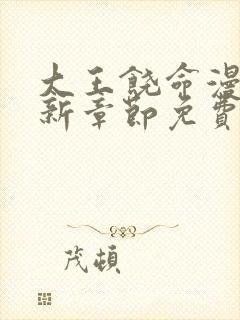 大王饶命漫
新章節免費
茂頓